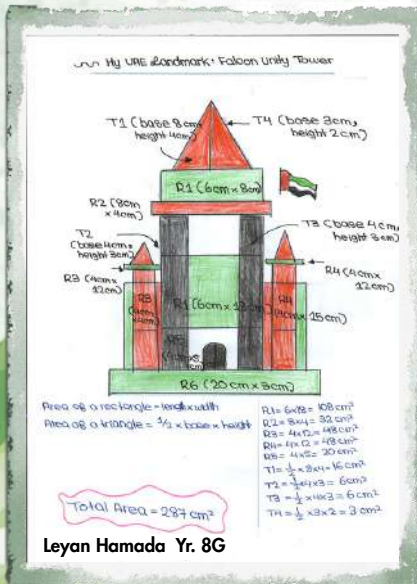 My UAE Landmark: Falcon Unity Tower
T1 (base 8cm,
height 4cm)
T4 (base 3cm,
height 2cm)
R1 (6cm x 8cm)
R2 (8cm
x 4cm)
T2
(base 4cm,
height 3cm)
T3 (base 4cm,
height 3cm)
R3 (4cm x
12cm)
R4 (4cm x
12cm)
R3
R4
R1 (6cm x
15cm)
R5
R6 (20cm x 3cm)
Area of a rectangle = length x width
Area of a triangle = 1/2 x base x height
R1 = 6x18 = 108 cm²
R2 = 8x4 = 32 cm²
R3 = 4x12 = 48 cm²
R4 = 4x12 = 48 cm²
R5 = 4x5 = 20 cm²
T1 = 1/2 x 8x4 = 16 cm²
T2 = 1/2 x 4x3 = 6cm²
T3 = 1/2 x 4x3 = 6 cm²
T4 = 1/2 x 3x2 = 3 cm²
Total Area = 287 cm²
Leyan Hamada Yr. 8G